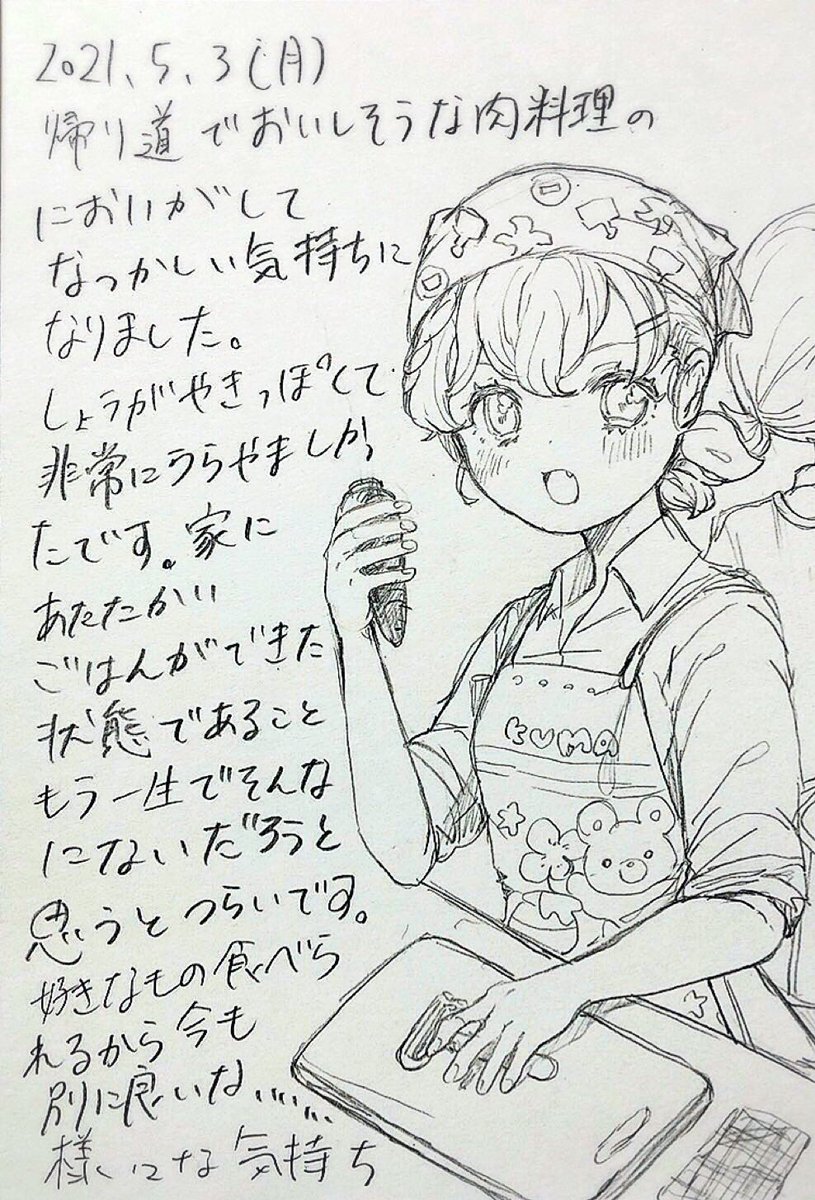 2021.5.3(月)
帰り道でおいしそうな肉料理の
においがして
なつかしい気持ちに
なりました。
しょうがやきっぽくて
非常にうらやましかっ
たです。家に
あたたかい
ごはんができた
状態であること
もう一生でそんな
にないだろうと
思うとつらいです。
好きなもの食べら
れるから今も
別に良いな……
様々な気持ち
KUMA